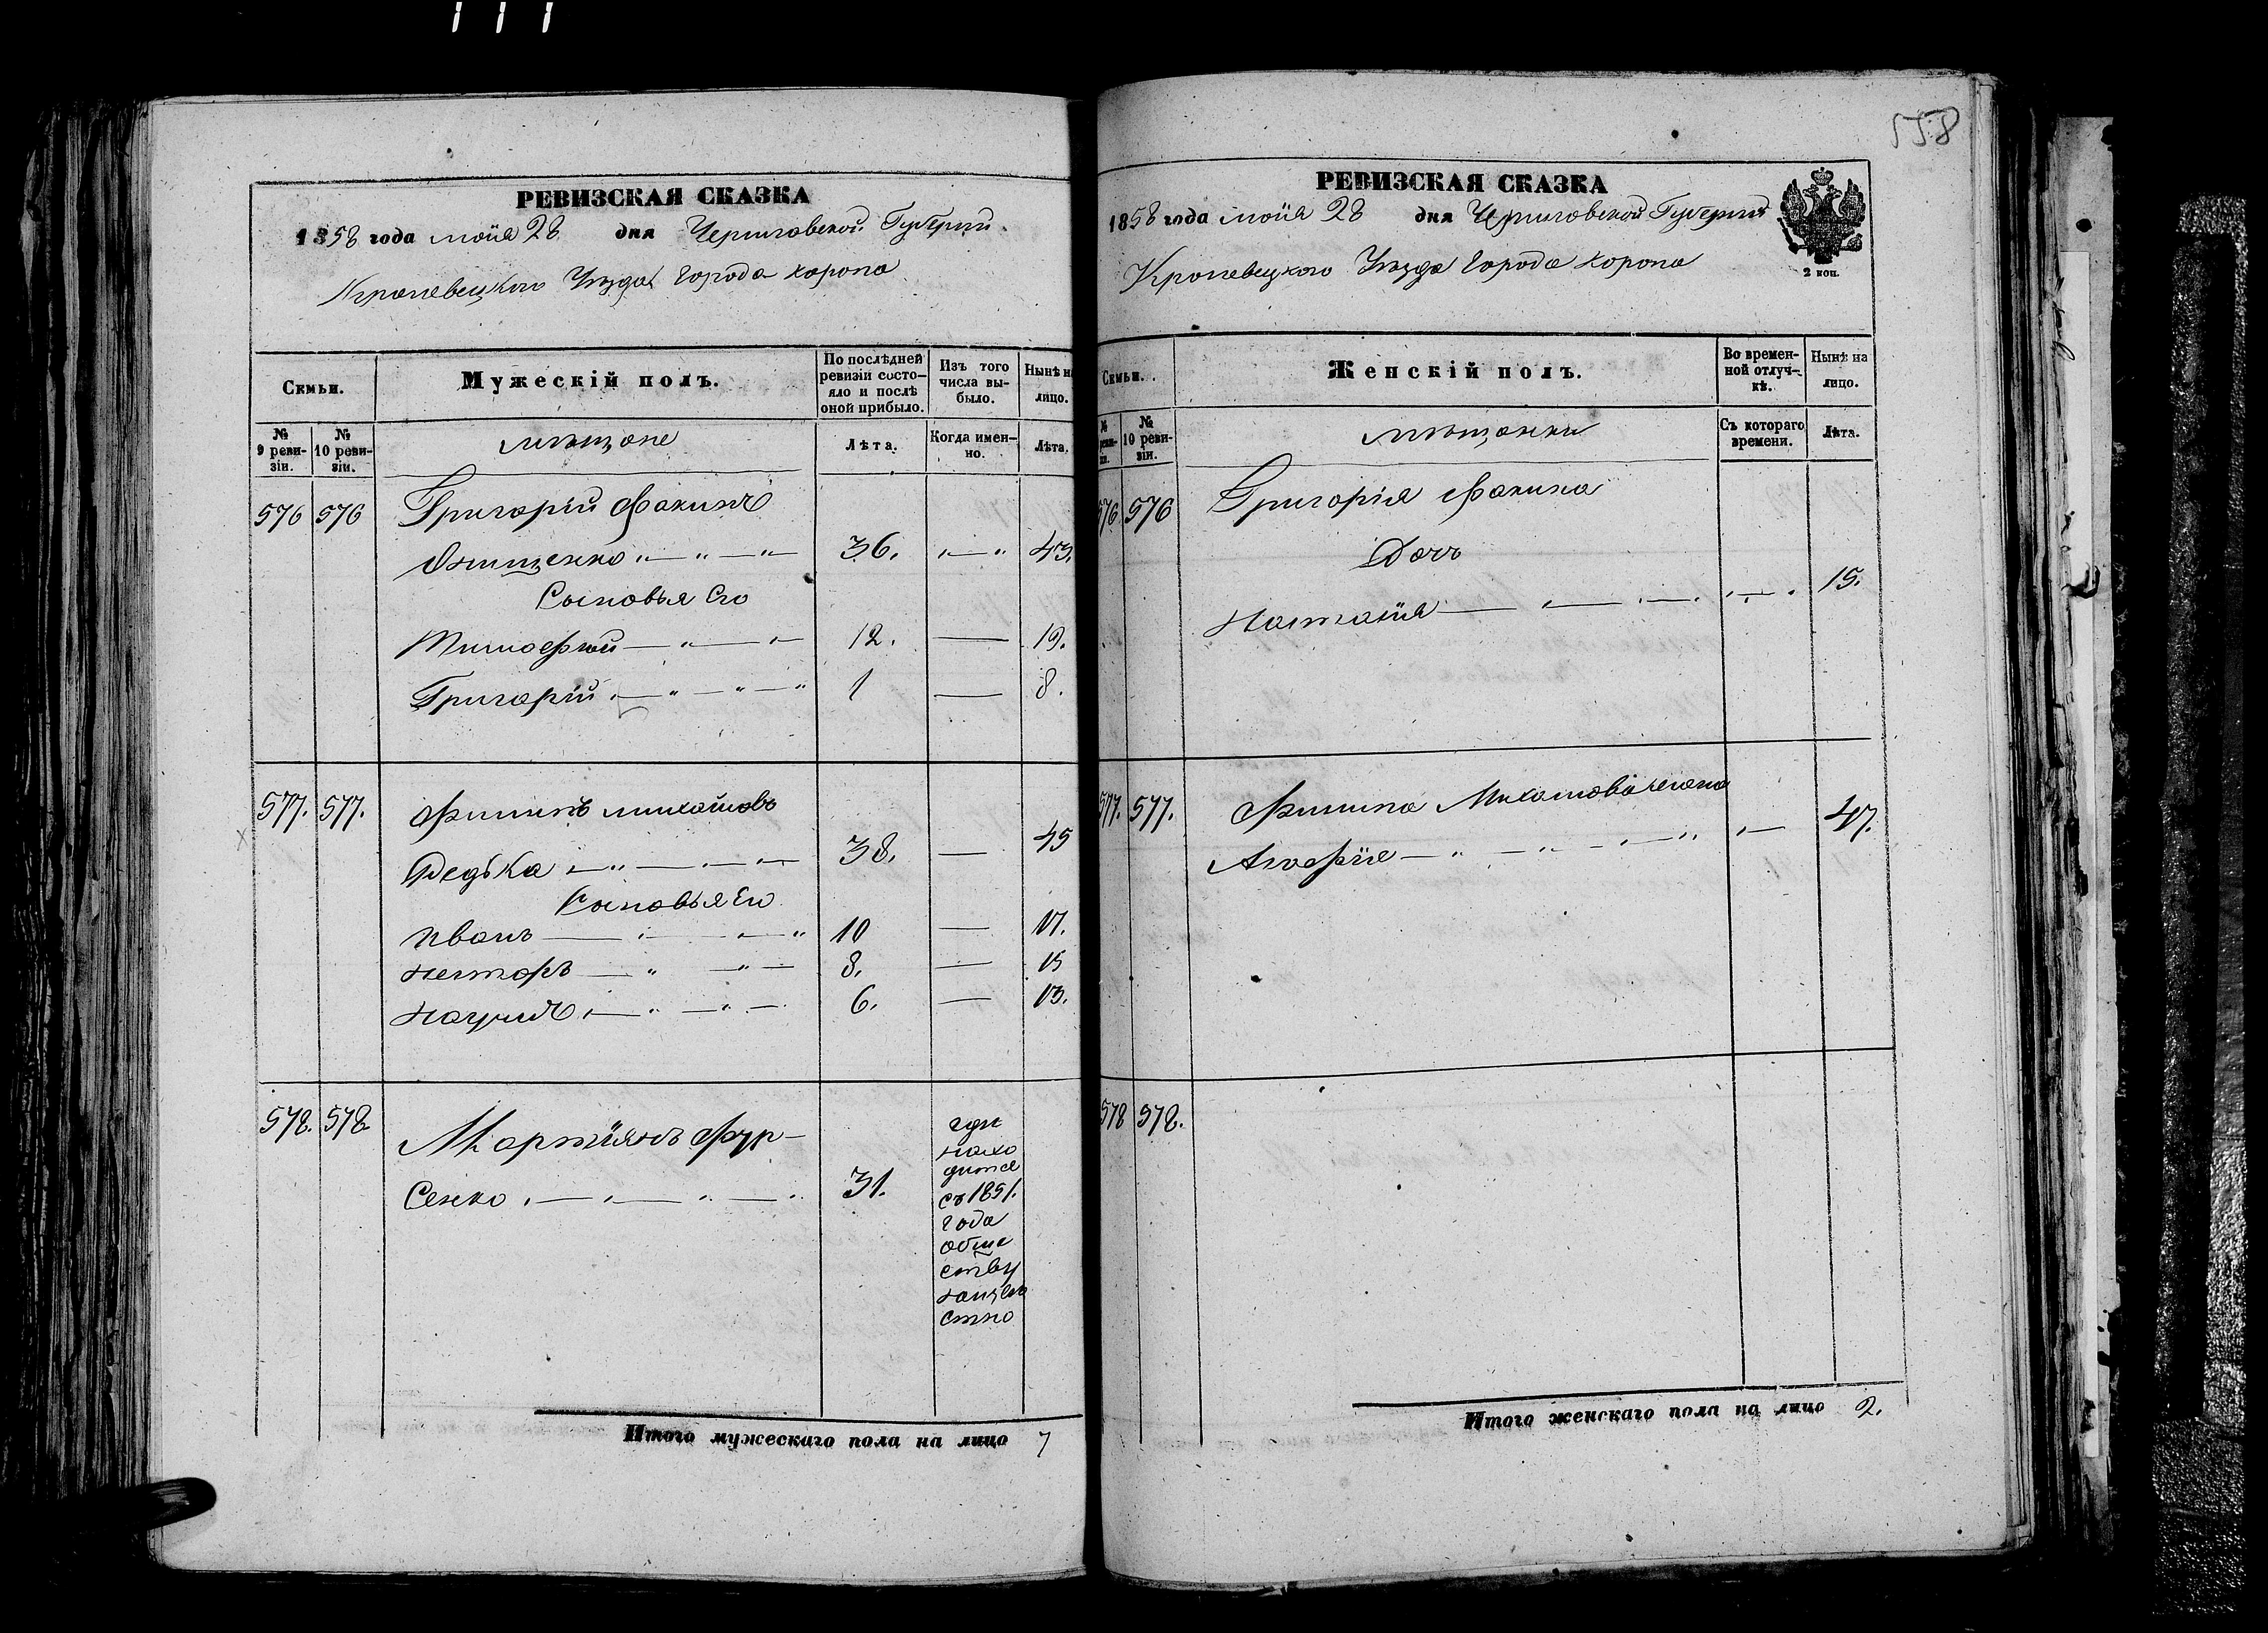 558
РЕВИЗСКАЯ СКАЗКА
1858 года мая 28 дня Черниговской Губернии
Кролевецкого Уезда города Коропа
Семьи.
Мужескій полъ.
По послѣдней ревизіи состо-
яло и послѣ оной прибыло.
Изъ того числа вы-
было.
Нынѣ на лицо.
№ 9 реви-
зіи.
№ 10 реви-
зіи.
мѣщане
Лѣта.
Когда имен-
но.
Лѣта.
576 576 Григорій Фокинъ
Онищенко 36. 43.
Сыновья Его
Тимофей 12. 19.
Григорій 1 8.
577. 577. Филипъ Михайловъ
Редька 38. 45
Сыновья Его
Иванъ 10 17.
Несторъ 8. 15
Наумъ 6. 13.
578. 578. Мартиянъ Фур-
Сенко 31.
где
нахо
дится
съ 1851.
года
обще
ству
неизвѣ
стно
Итого мужескаго пола на лицо 7
РЕВИЗСКАЯ СКАЗКА
1858 года мая 28 дня Черниговской Губернии
2 коп.
Кролевецкого Уезда города Коропа
Семьи.
Женскій полъ.
Во времен-
ной отлуч-
кѣ.
Нынѣ на лицо.
№ 10 реви-
зіи.
мѣщанки
Съ котораго времени.
Лѣта.
576 576 Григорія Фокина
Дочь
Наталия 15.
577. 577. Филипа Михайлова жена
Агафия 47.
578 578.
Итого женскаго пола на лицо 2.